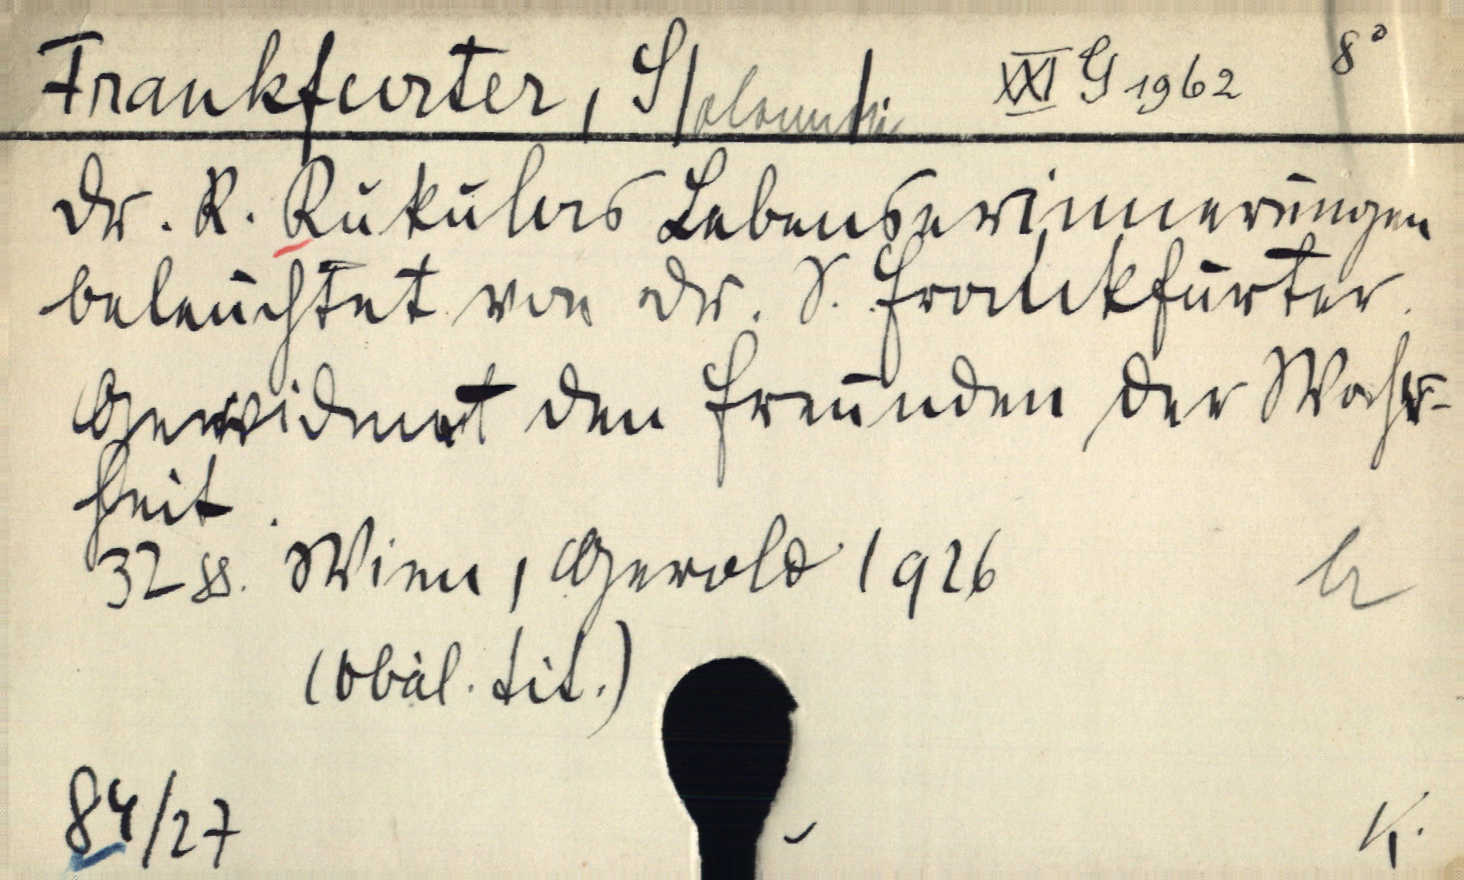 Frankfurter, S/alomon/ XXI G 1962 8°
Dr. R. Kukulas Lebenserinnerungen
beleuchtet von Dr. S. Frankfurter.
Gewidmet den Freunden der Wahr-
heit.
32 ss. Wien, Gerold 1926
(obál. tit.)
84/27 K.